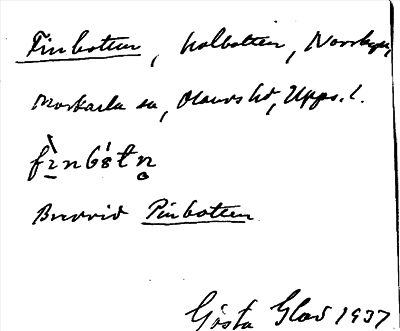 Finbotten, Kolbotten, Norrbyn,
Morkarla sn, Olands hd, Upps. l.
fìnbótn̥
Bredvid Finbotten
Gösta Glad 1937